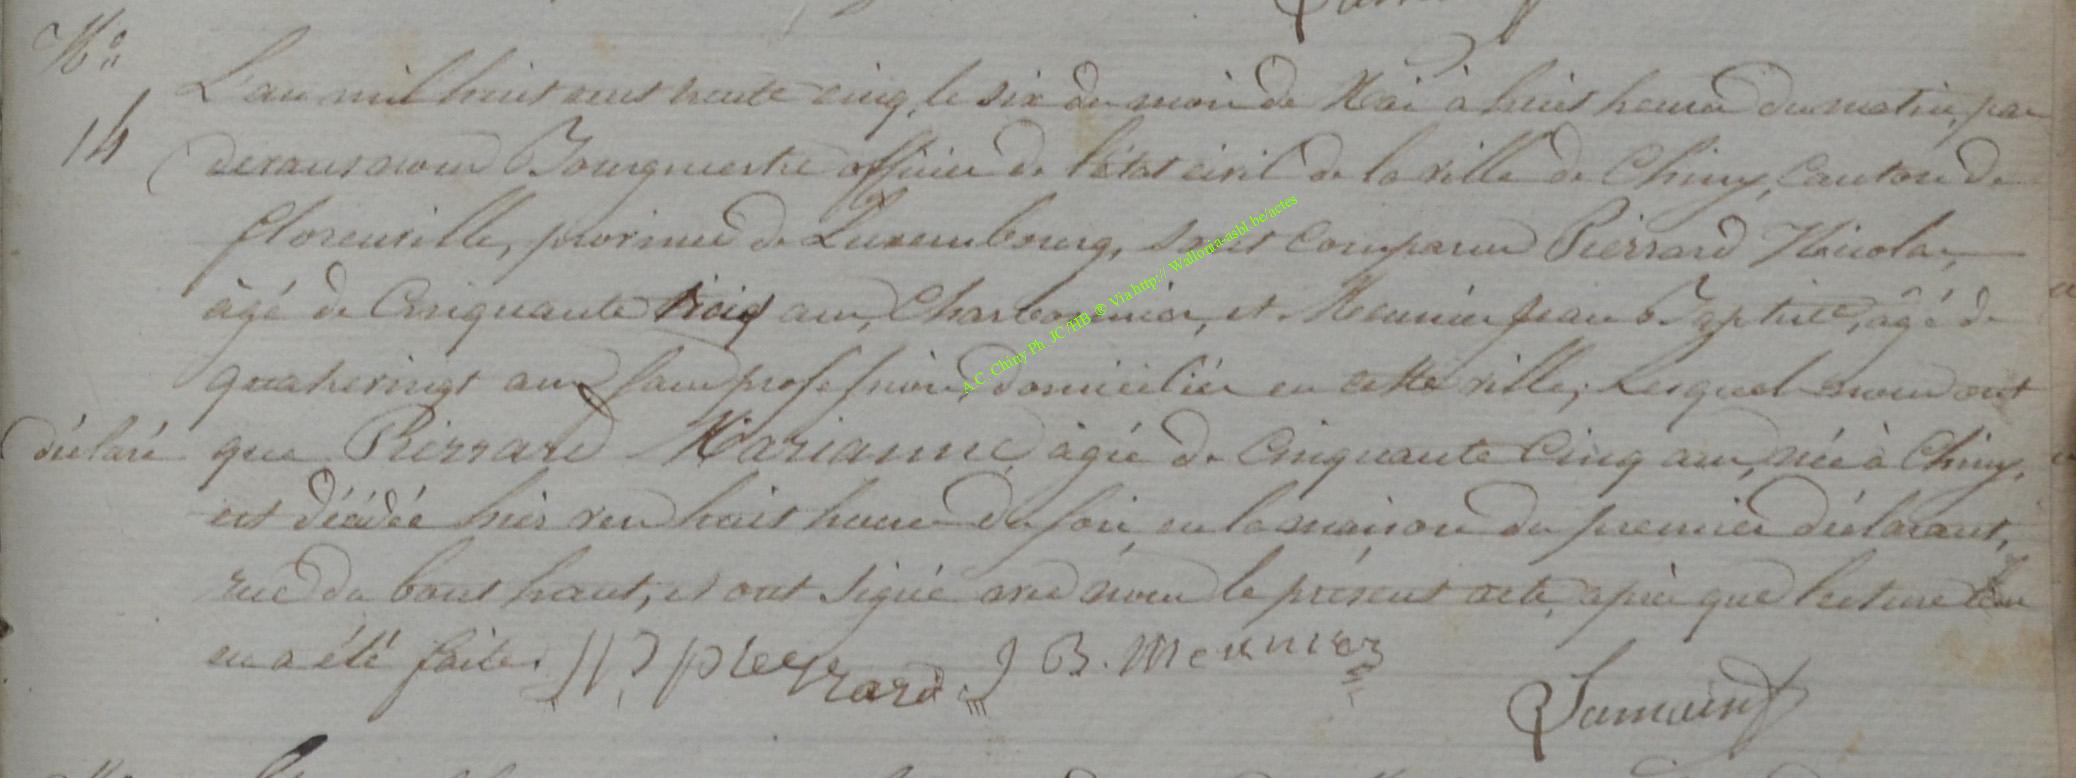 N°
14
L'an mil huit cent trente cinq, le six du mois de Mai à huit heures du matin, par
devant nous Bourgmestre officier de l'état civil de la ville de Chiny, Canton de
florenville, province de Luxembourg, sont comparus Pierrard Nicolas,
âgé de Cinquante trois ans, Charbonnier, et Meunier Jean Baptiste, âgé de
quatrevingt ans, sans profession, domiciliés en cette ville, Lesquels nous ont
déclaré que Pierrard Marianne, âgée de Cinquante Cinq ans, née à Chiny,
est décédée hier vers huit heures du soir, en la maison du premier déclarant,
rue du bout haut, et ont signé avec nous le présent acte, après que lecture leur
en a été faite. pierrard J B. Meunier
A.C. Chiny Ph. JC/HB ® Via http:// Wallonia-asbl.be/actes